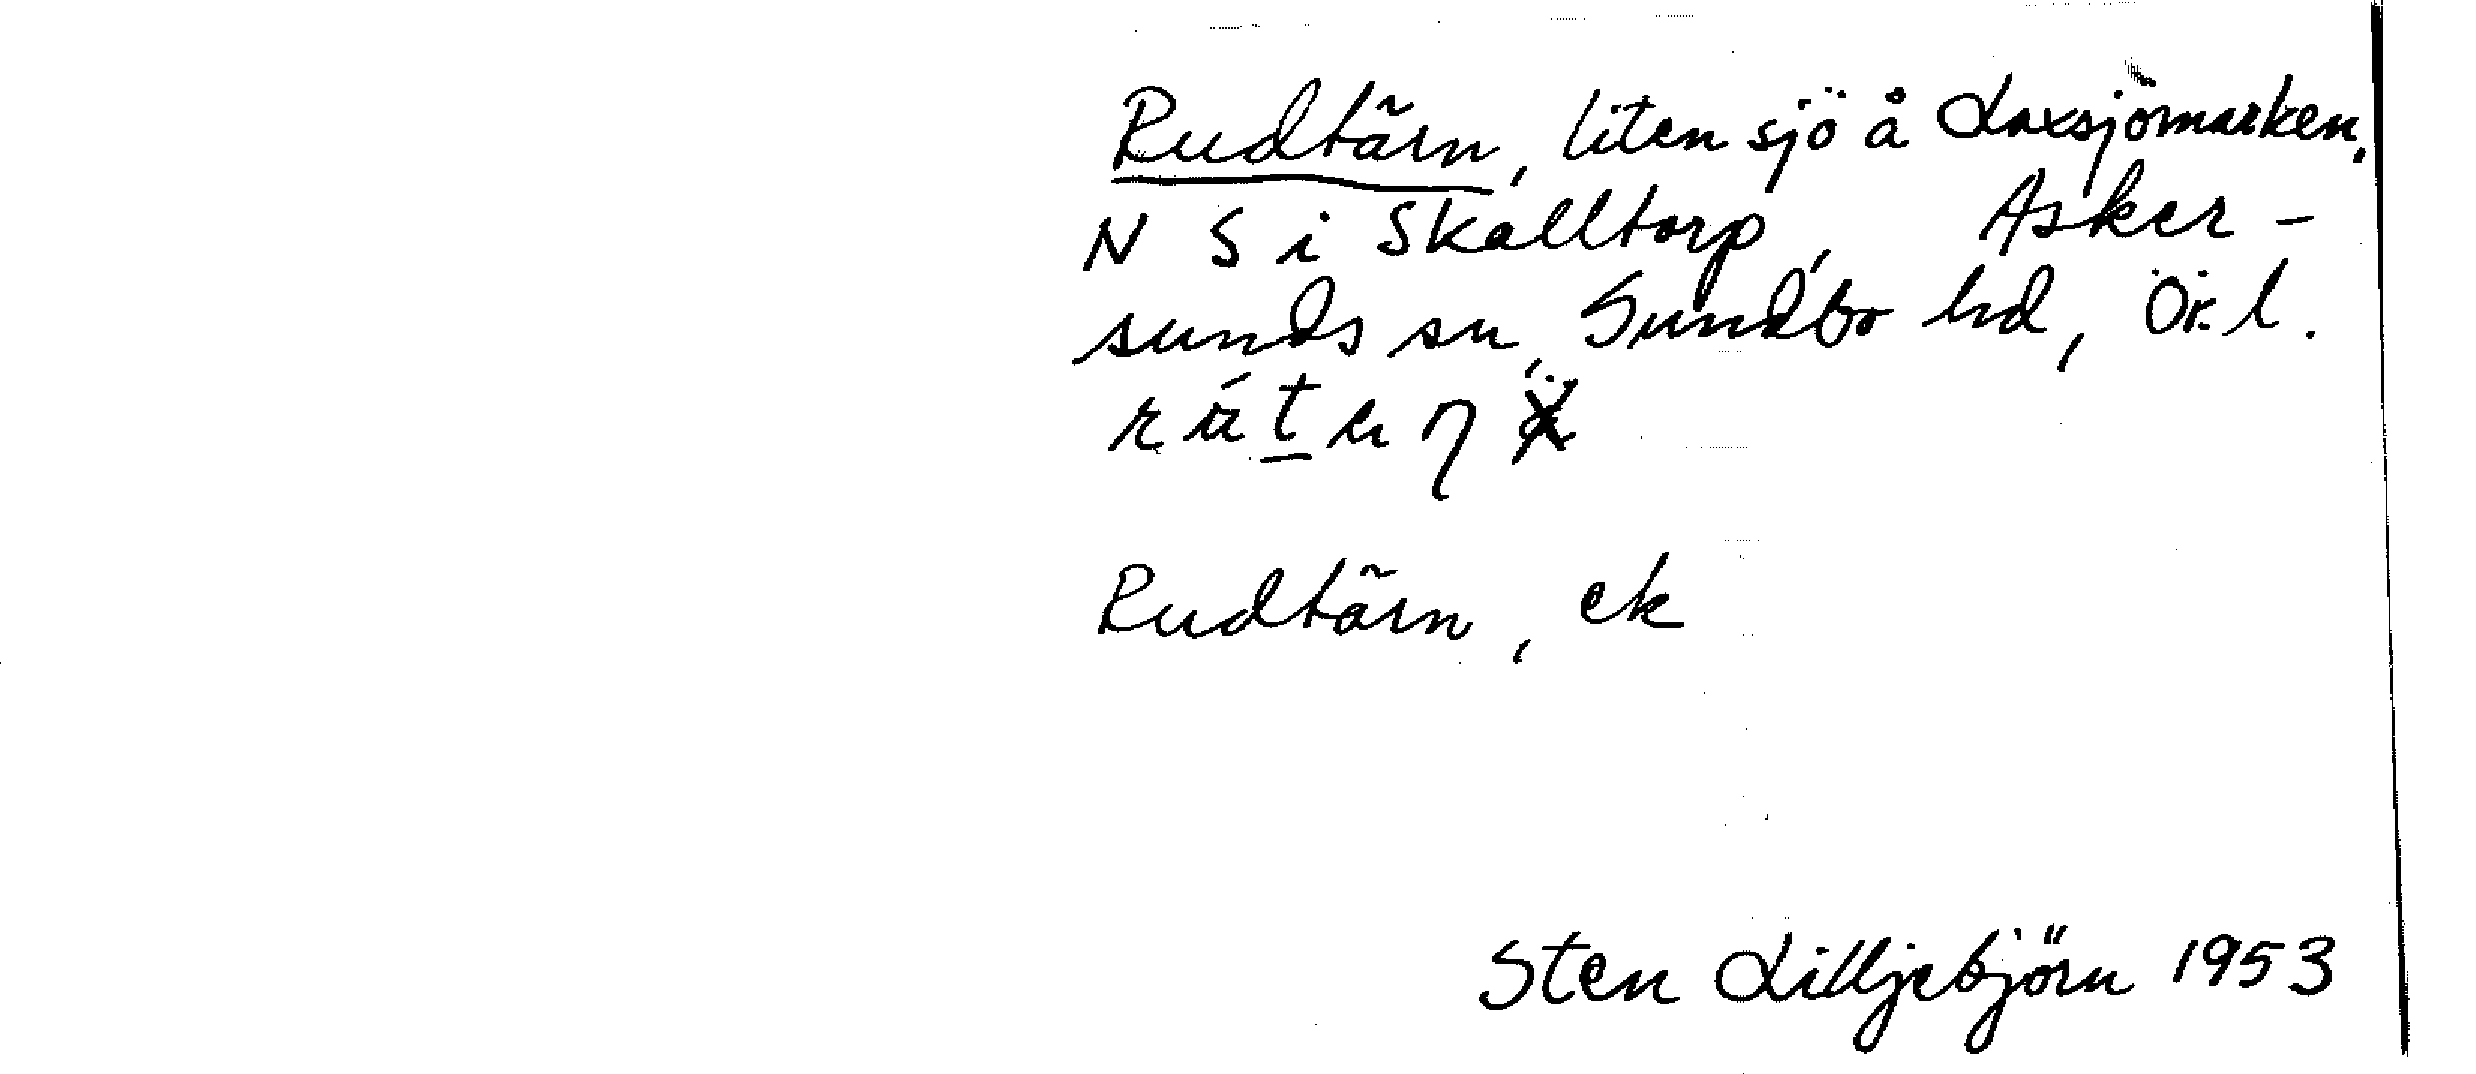 Rudtärn, liten sjö å Laxsjömarken,
N S i Skålltorp, Asker-
sunds sn, Sundbo hd, Ör. l.
Rudtärn, ek
Sten Lilljebjörn 1953